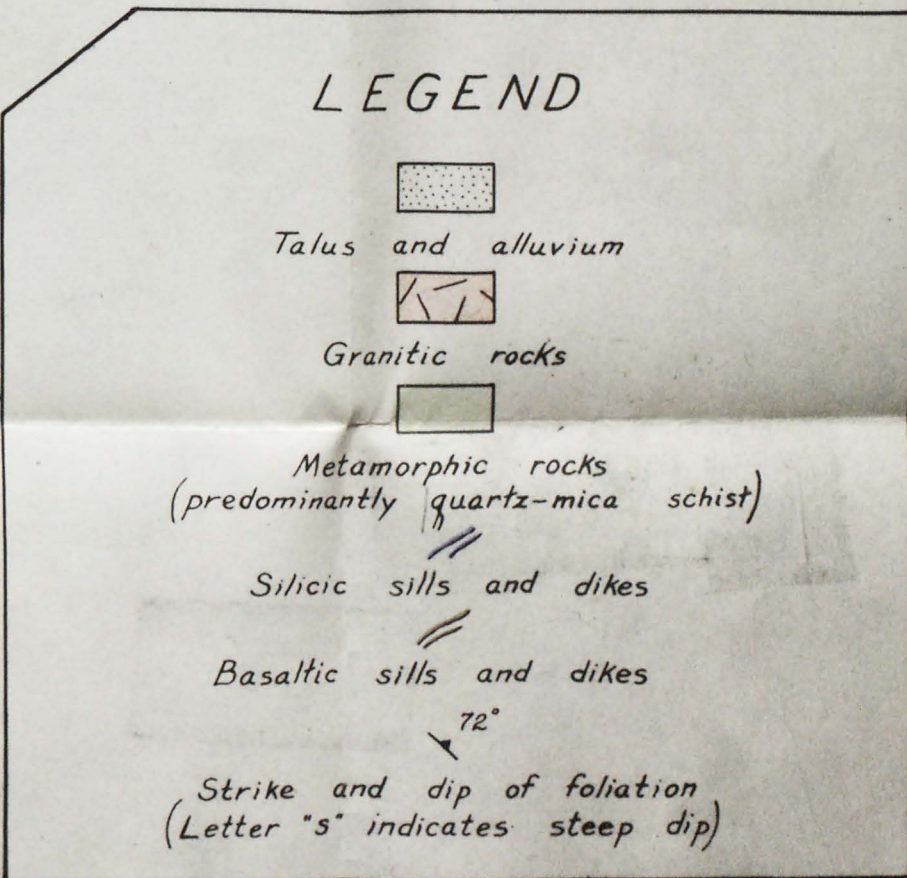 LEGEND
Talus and alluvium
Granitic rocks
Metamorphic rocks
(predominantly quartz-mica schist)
Silicic sills and dikes
Basaltic sills and dikes
72°
Strike and dip of foliation
(Letter "s" indicates steep dip)